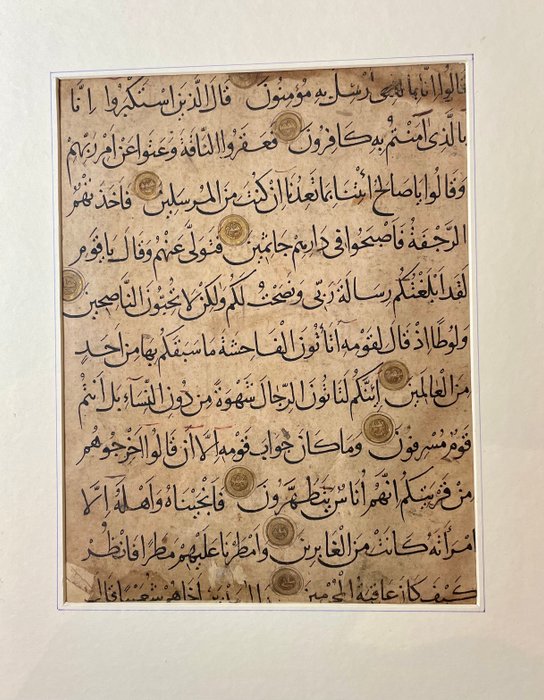 قالوا انا بما ارسل به مؤمنون قال الذين استكبروا انا
بالذي آمنتم به كافرون فعقروا الناقة وعتوا عن امر ربهم
وقالوا يا صالح ائتنا بما تعدنا ان كنت من المرسلين فاخذتهم
الرجفة فاصبحوا في دارهم جاثمين فتولى عنهم وقال يا قوم
لقد ابلغتكم رسالة ربي ونصحت لكم ولكن لا تحبون الناصحين
ولوطا اذ قال لقومه اتأتون الفاحشة ما سبقكم بها من احد
من العالمين ائنكم لتاتون الرجال شهوة من دون النساء بل انتم
قوم مسرفون وما كان جواب قومه الا ان قالوا اخرجوهم
من قريتكم انهم اناس يتطهرون فانجيناه واهله الا
امرأته كانت من الغابرين وامطرنا عليهم مطرا فانظر
كيف كان عاقبة المجرمين اخاهم شعيبا قال